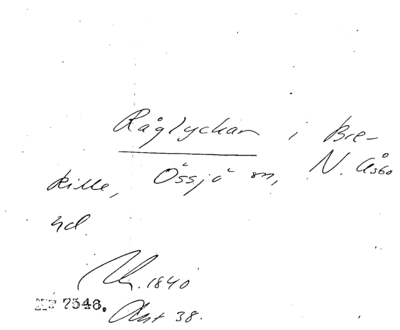 Råglyckan i Bre-
kille, Össjö sn, N. Åsbo
hd.
1840
Nº 7546. Akt 38.